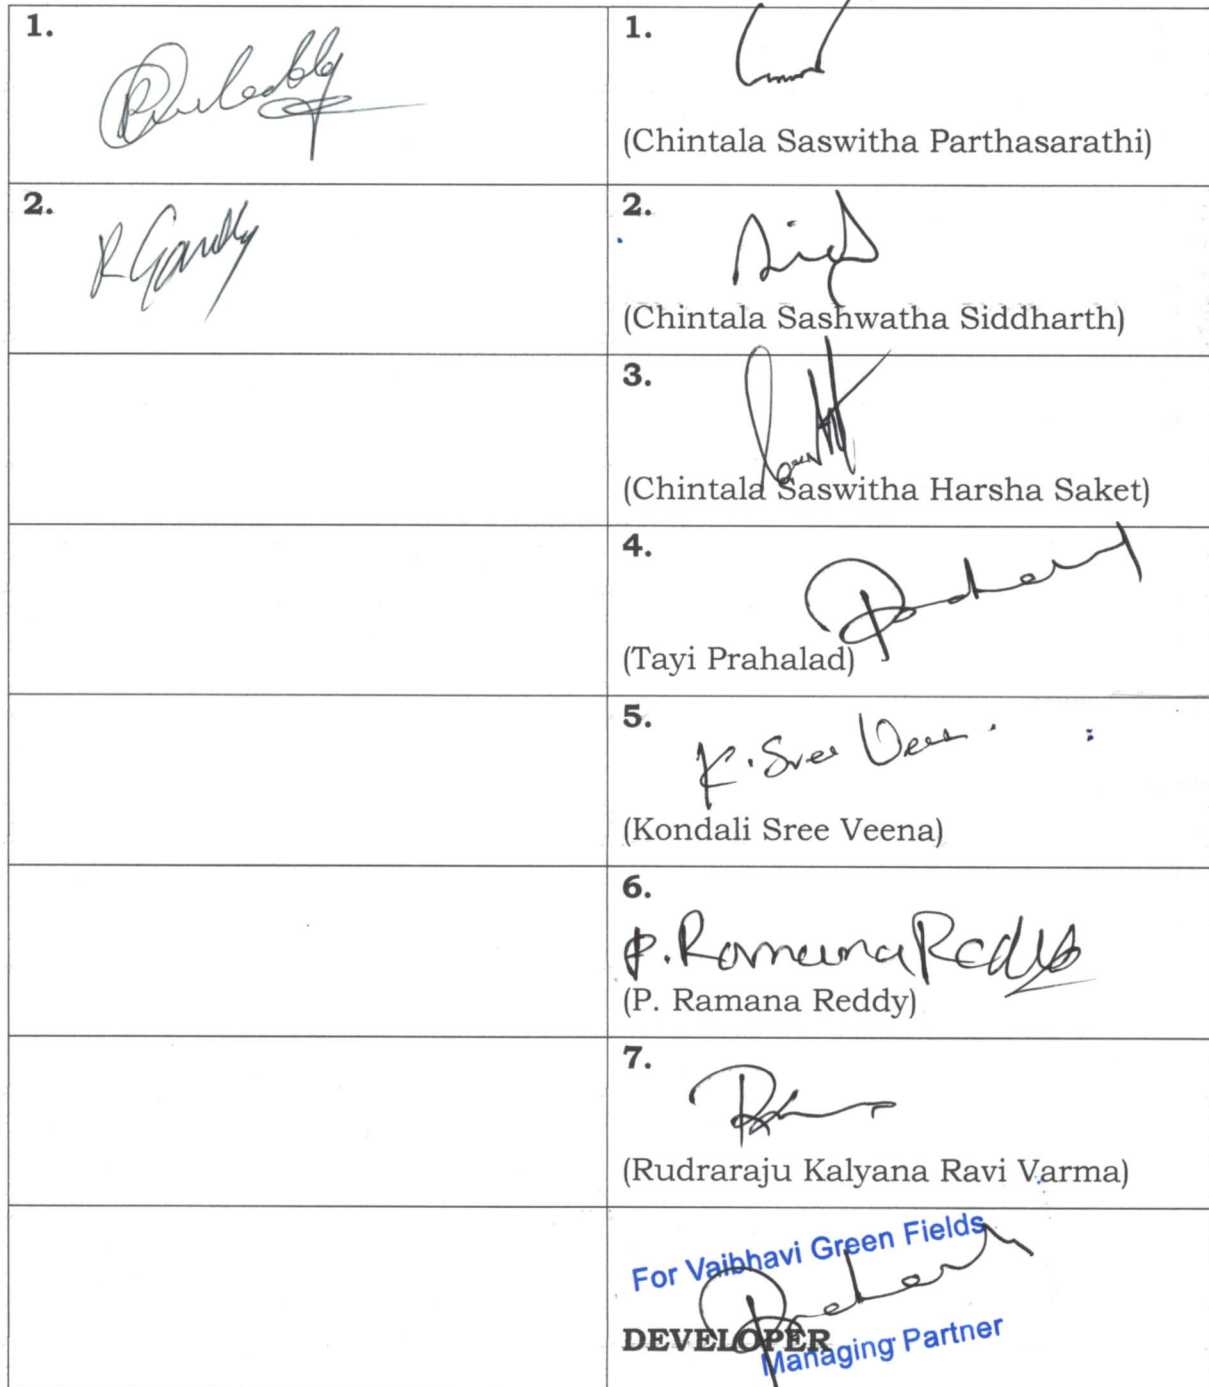 1.
1.
(Chintala Saswitha Parthasarathi)
2.
R Gandhy
2.
(Chintala Sashwatha Siddharth)
3.
(Chintala Saswitha Harsha Saket)
4.
(Tayi Prahalad)
5.
K. Sree Veena
(Kondali Sree Veena)
6.
P. Ramana Reddy
(P. Ramana Reddy)
7.
(Rudraraju Kalyana Ravi Varma)
For Vaibhavi Green Fields
DEVELOPER
Managing Partner